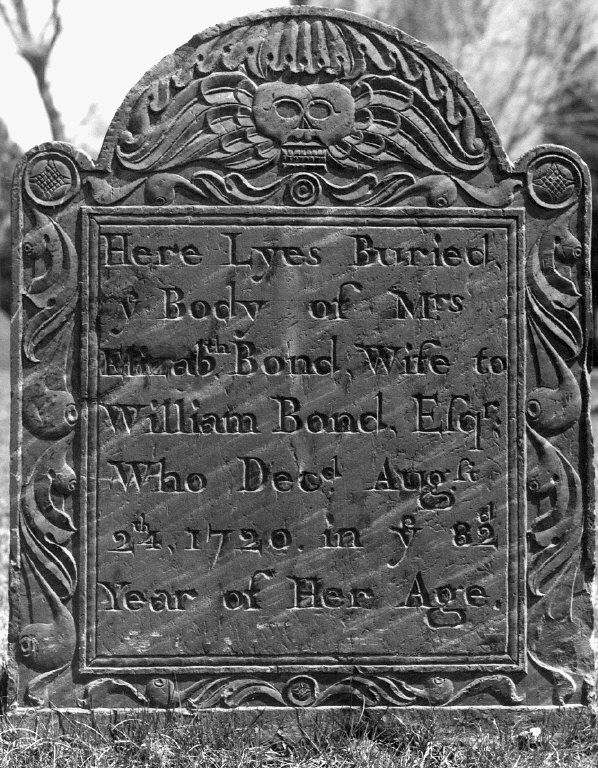 Here Lyes Buried,
yͤ Body of Mrs
Elizabth Bond, Wife to
William Bond, Eſqr:
Who Decd Augſt
24th, 1720. in yͤ 82d
Year of Her Age.